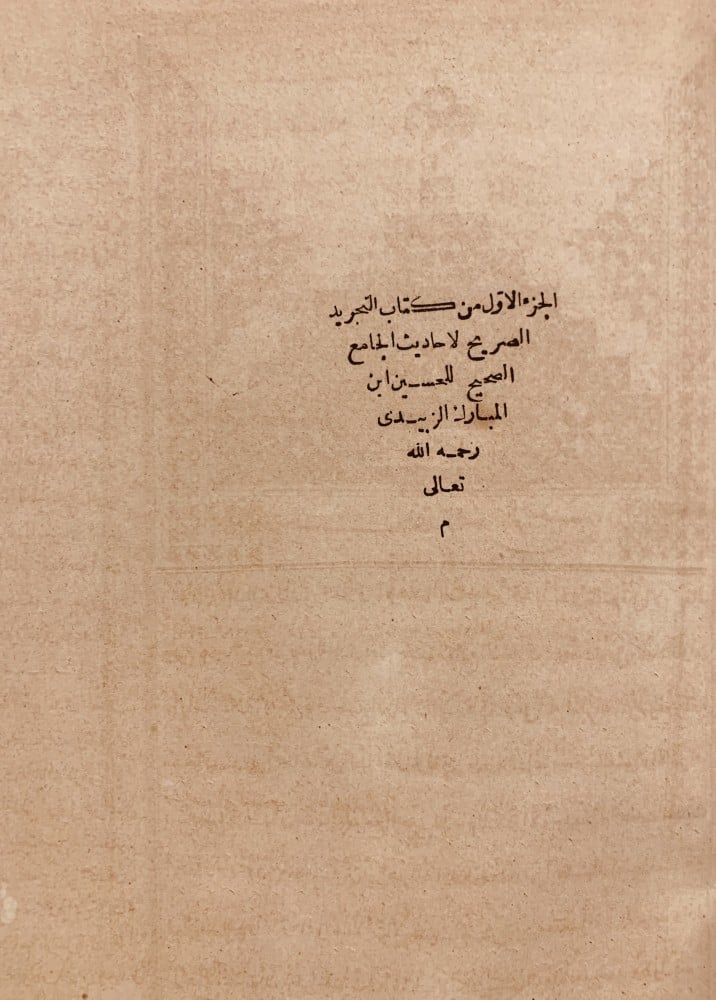 الجزء الاول من كتاب التجريد
الصريح لاحاديث الجامع
الصحيح للحسين ابن
المبارك الزبيدى
رحمه الله
تعالى
م